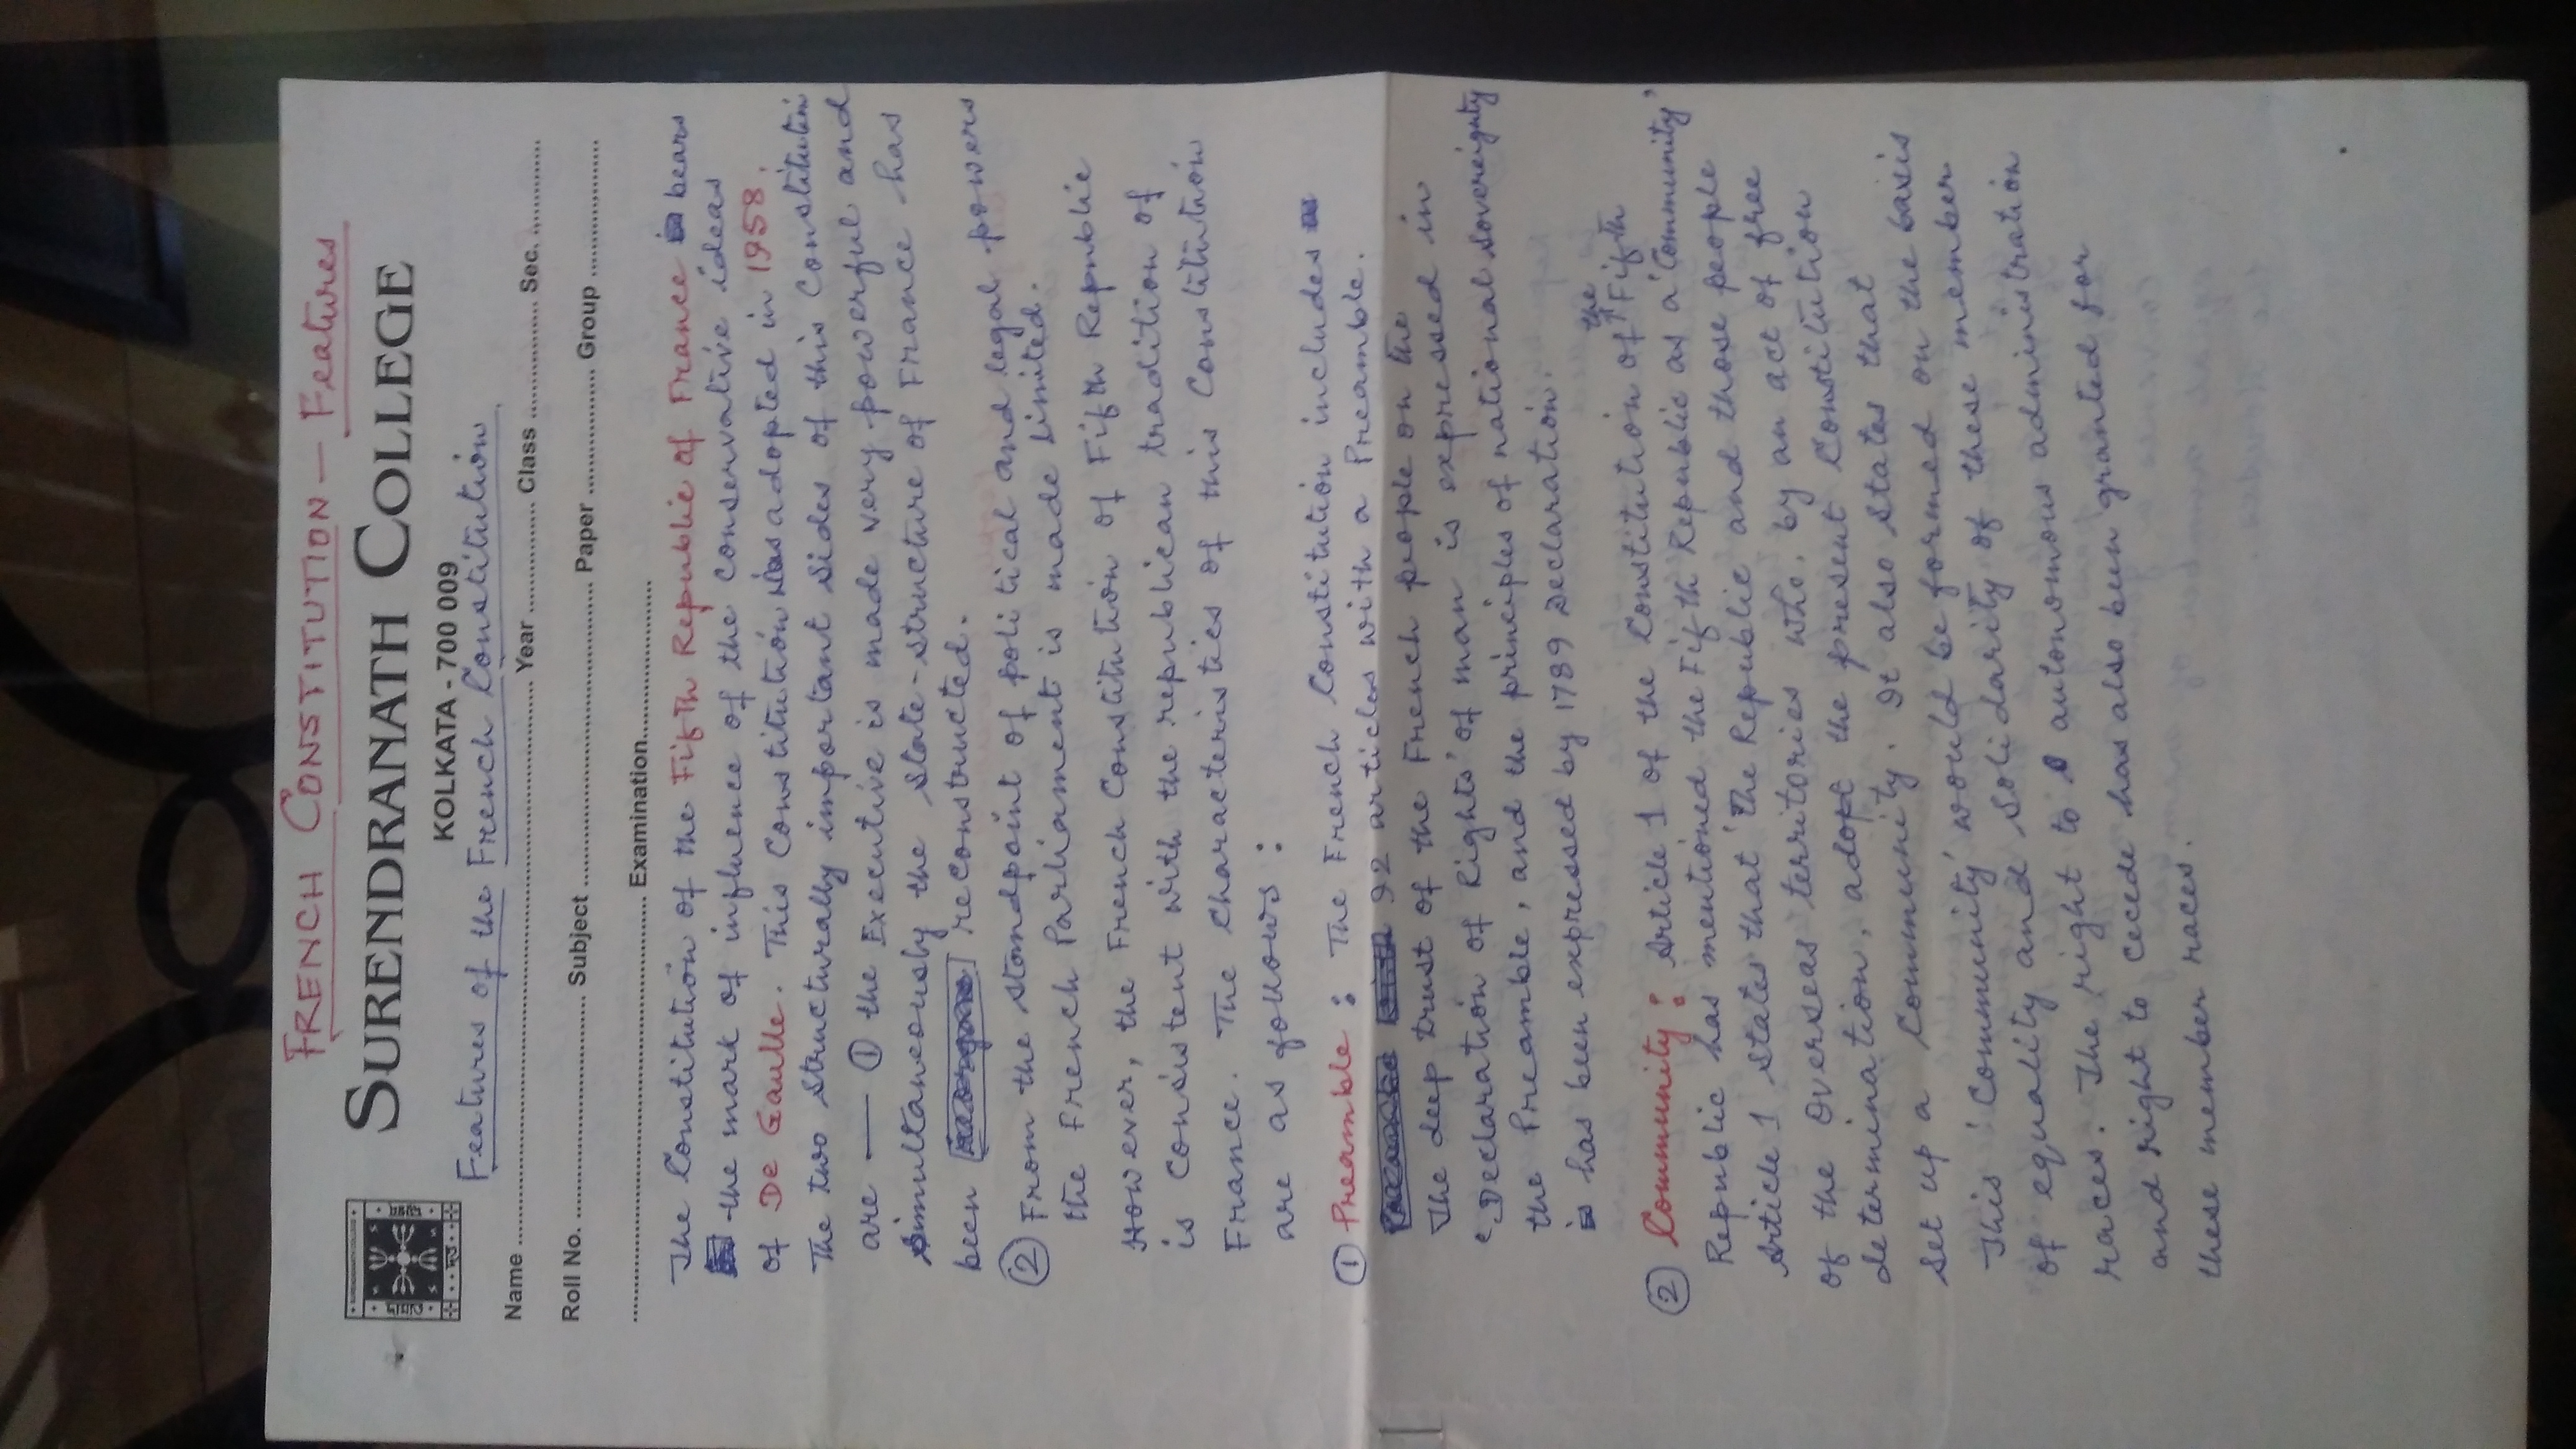 FRENCH CONSTITUTION — Features
SURENDRANATH COLLEGE
KOLKATA - 700 009
Features of the French Constitution
Name ........ Year ........ Class ........ Sec. ........
Roll No. ........ Subject ........ Paper ........ Group ........
........ Examination........
The Constitution of the Fifth Republic of France bears
the mark of influence of the conservative ideas
of De Gaulle. This Constitution was adopted in 1958.
The two structurally important sides of this Constitution
are — ① the Executive is made very powerful and
simultaneously the state-structure of France has
been reconstructed.
② From the standpoint of political and legal powers
the French Parliament is made limited.
However, the French Constitution of Fifth Republic
is consistent with the republican tradition of
France. The characteristics of this Constitution
are as follows :
① Preamble : The French Constitution includes
92 articles with a Preamble.
The deep trust of the French people on the
'Declaration of Rights' of man is expressed in
the Preamble, and the principles of national sovereignty
has been expressed by 1789 Declaration.
② Community : Article 1 of the Constitution of the Fifth
Republic has mentioned the Fifth Republic as a 'Community'
Article 1 states that 'The Republic and those people
of the overseas territories who, by an act of free
determination, adopt the present Constitution
set up a Community. It also states that
This 'Community' would be formed on the basis
of equality and solidarity of these member
races. The right to autonomous administration
and right to cecede has also been granted for
these member races.